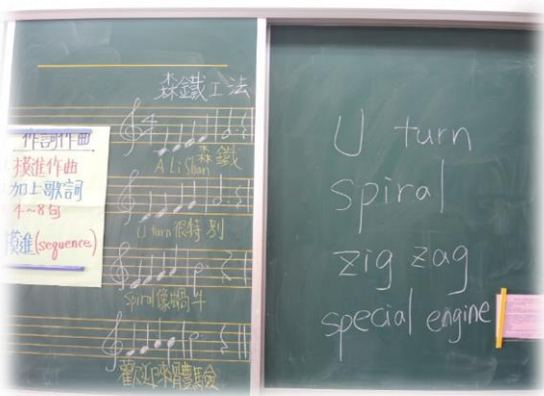 森鐵工法
作詞作曲
模進作曲
加上歌詞
4~8句
模進(sequence)
A Li Shan 森鐵
U turn很特別
spiral像蝸牛
歡迎來體驗
U turn
spiral
zig zag
special engine